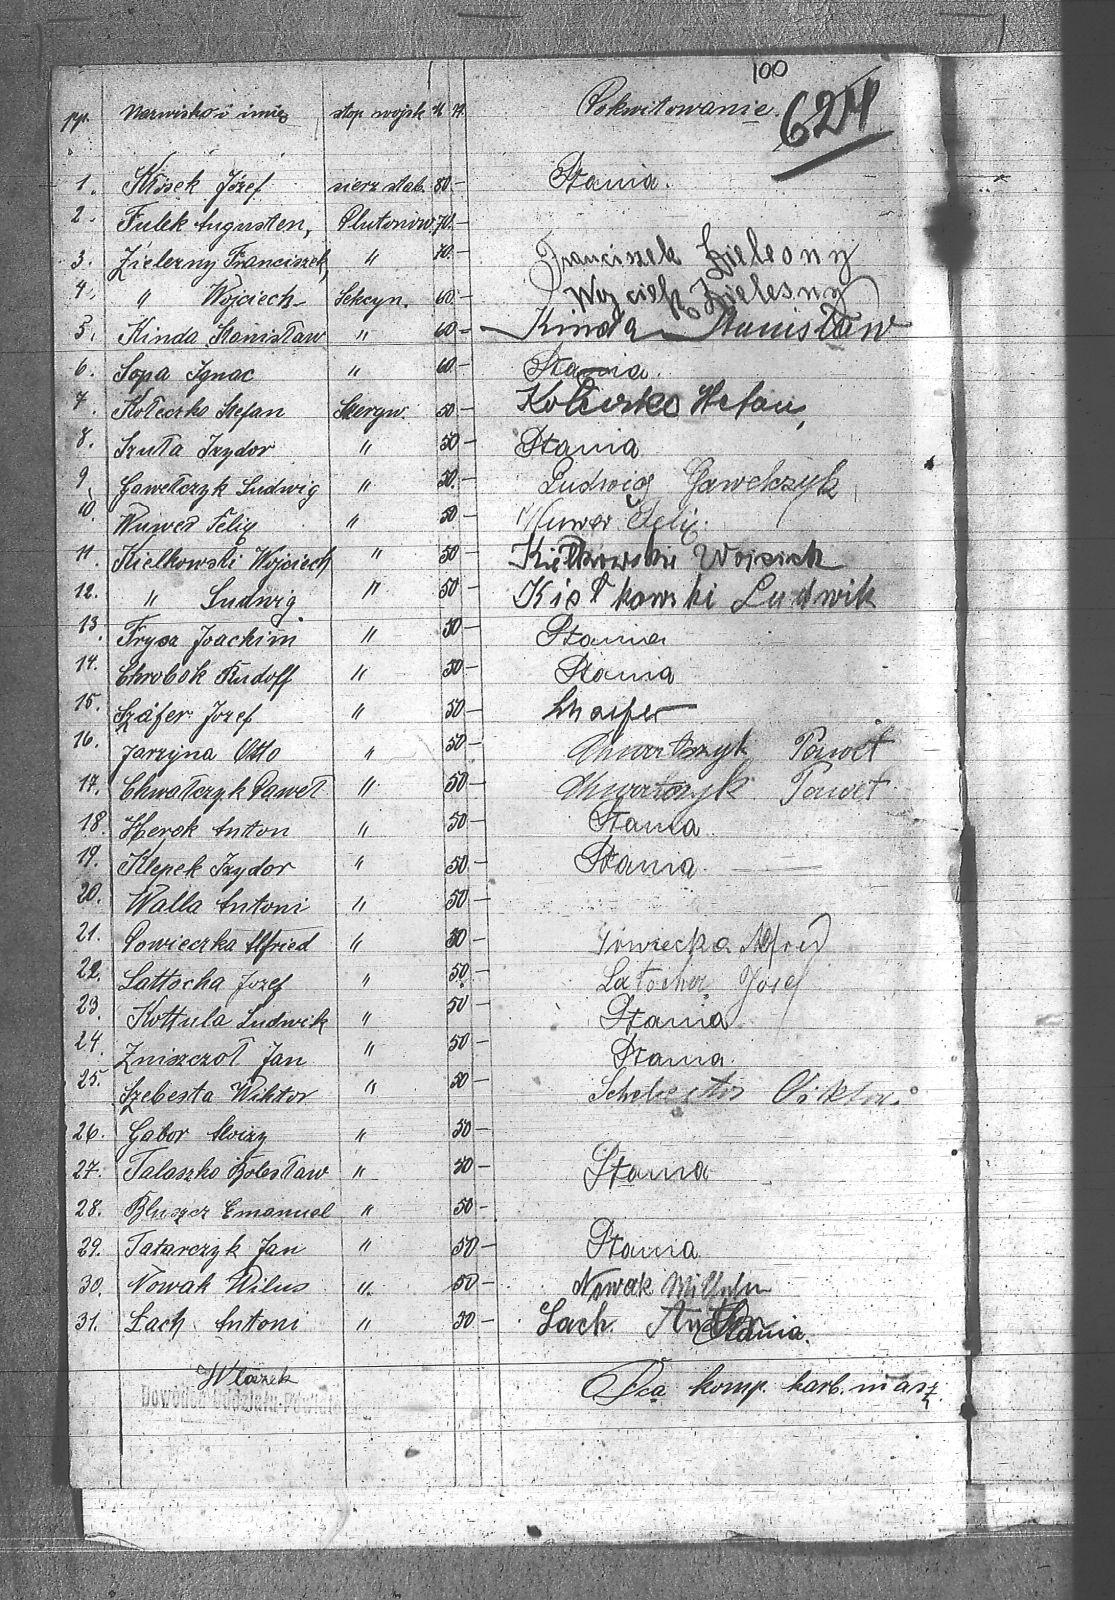 100
pp. Nazwisko i imię stop. wojsk M. f. Pokwitowanie. 624
1. Kłosek Józef sierz stab. 80.- Stania.
2. Fulek Augusten, Plutonow. 70.-
3. Zielezny Franciszek, " 70.- Franciszek Zielesny
4. " Wojciech Sekcyn. 60.- Wojciek Zielesny
5. Kinda Stanisław " 60.- Kinda Stanisław
6. Sopa Ignac " 60.- Stania.
7. Kołeczko Stefan Szeryw. 50- Stefan,
8. Szuła Izydor " 50- Stania
9. Gawełczyk Ludwig " 50.- Ludwig Gawelczyk
10. Wuwer Felix " 50- Wuwer Felix.
11. Kielkowski Wojciech " 50- Kiełkowski
12. " Ludwig " 50- Kiołkowski Ludwik
13. Frysz Joachim " 50- Stania
14. Chrobok Rudolf " 50- Stania
15. Száfer Jozef " 50- Schaefer
16. Jarzyna Otto " 50- Chwałczyk Paweł
17. Chwałczyk Paweł " 50- Chwałczyk Paweł
18. Herok Anton " 50- Stania
19. Klepek Izydor " 50- Stania.
20. Walla Antoni " 50-
21. Powieczka Alfried " 50- Powiecka Alfred
22. Lattocha Jozef " 50- Latocha Josef
23. Kottula Ludwik " 50- Stania
24. Zniszczoł Jan " 50- Stania.
25. Szebesta Wiktor " 50- Schebesta Viktor
26. Gabor Aloizy " 50-
27. Talaszko Bolesław " 50- Stania
28. Bluszcz Emanuel " 50-
29. Tatarczyk Jan " 50- Stania
30. Nowak Wilus " 50- Nowak Wilhelm
31. Łach Antoni " 50- Lach. Anton Stania.
Wlazek Dca komp. karb. masz.
Dowódca Oddziału Powstań